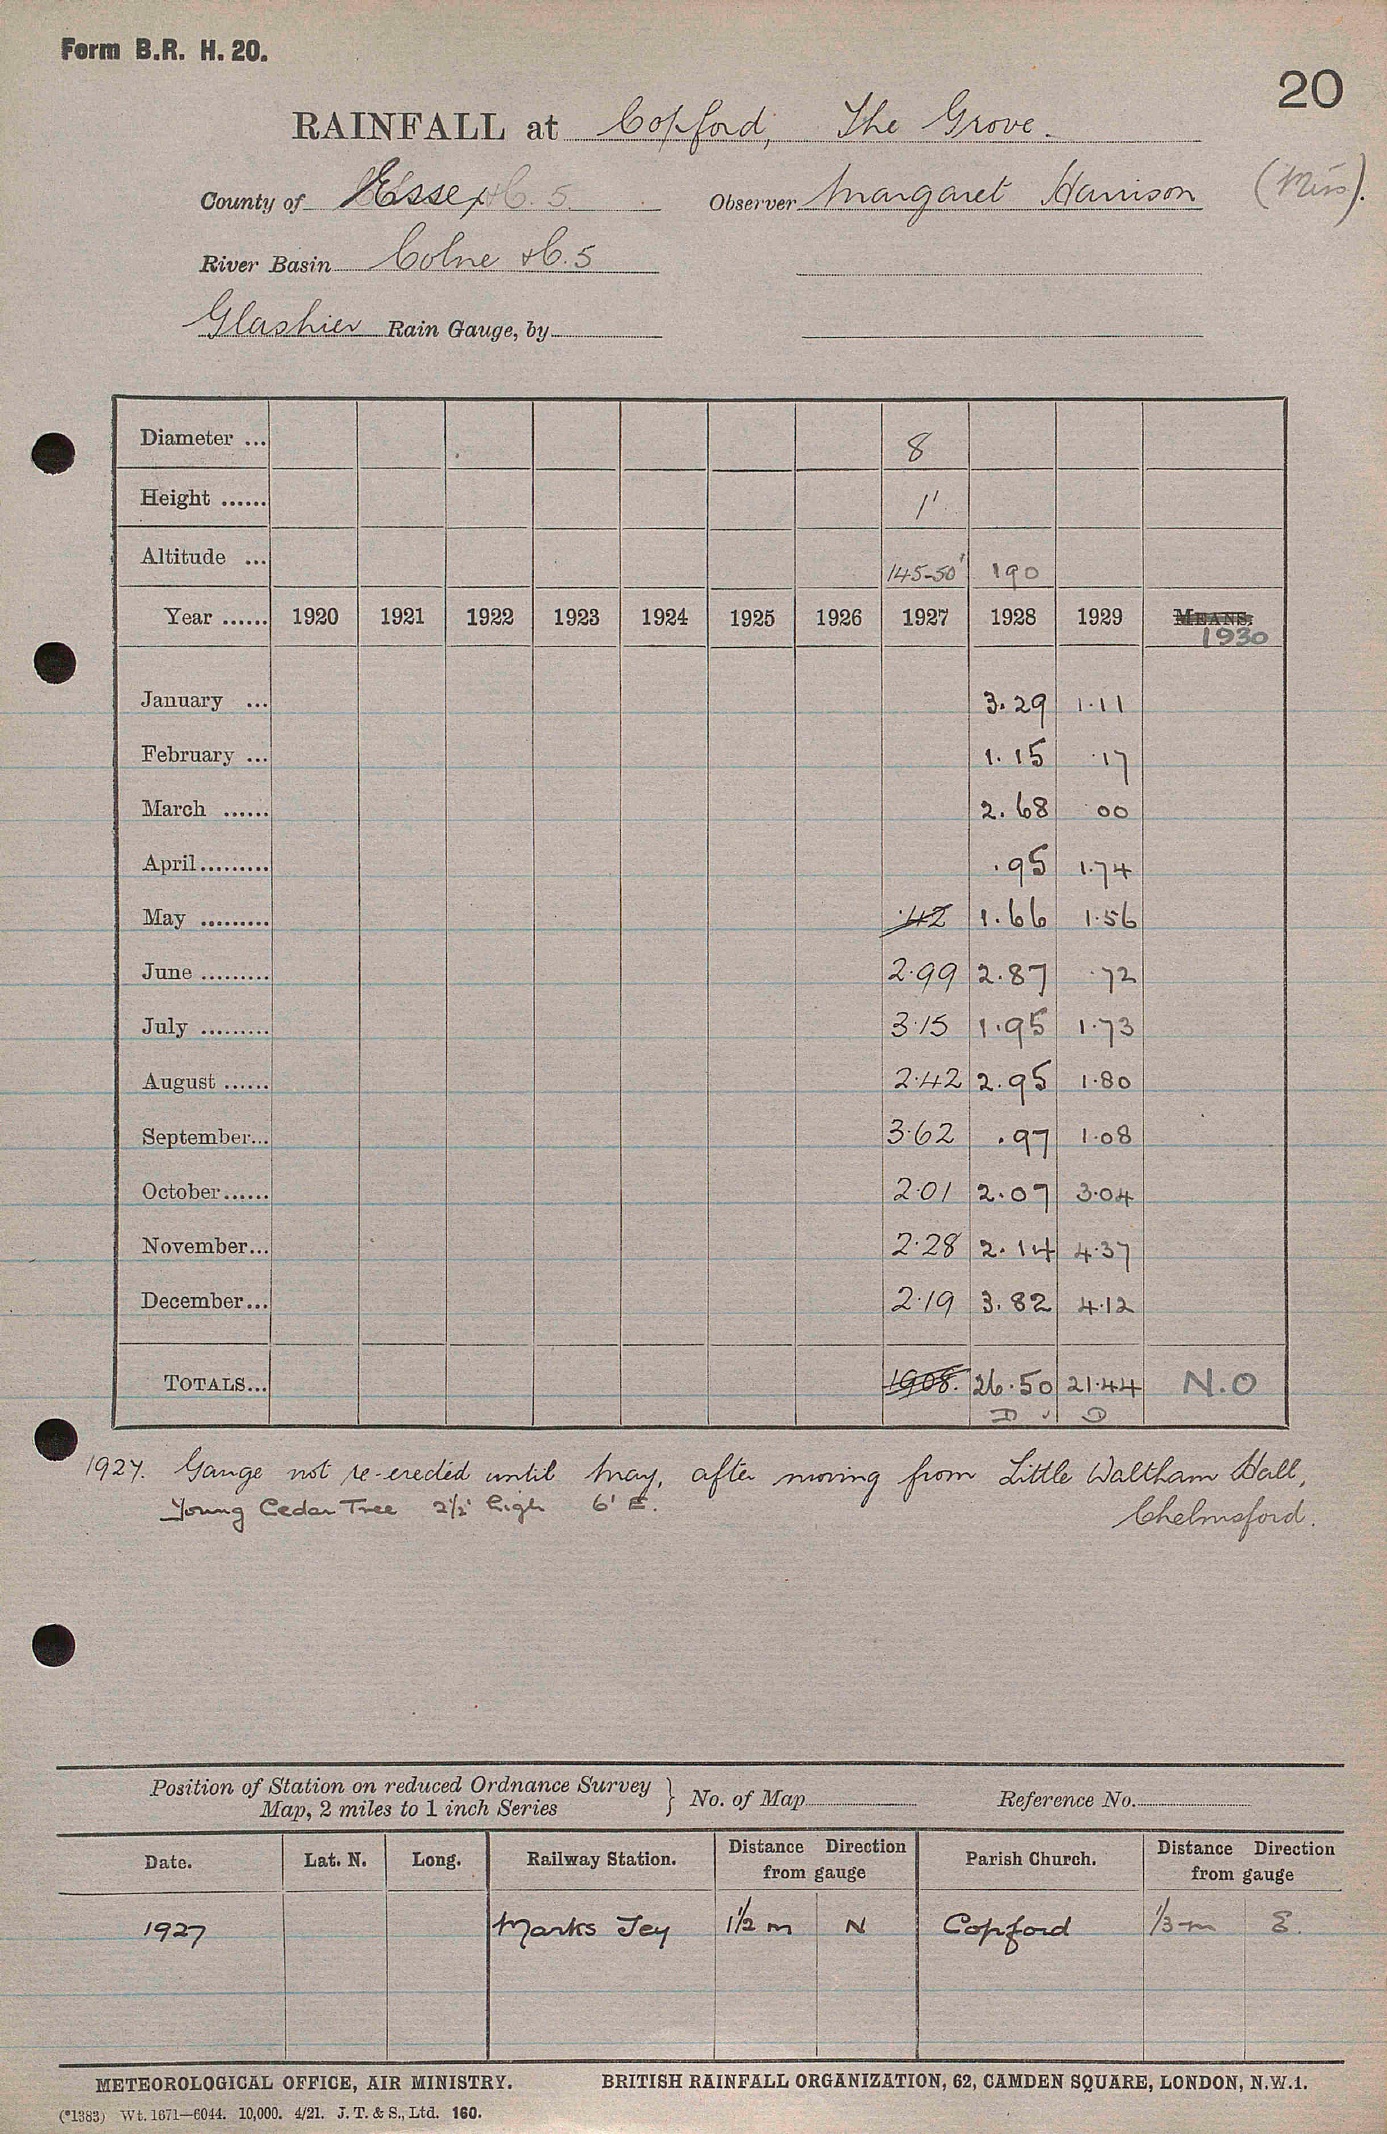 Form B.R. H. 20.
20
RAINFALL at Copford, The Grove.
County of Essex C. 5. Observer Margaret Harrison (Miss).
River Basin Colne &C. 5
Glashier Rain Gauge, by
Diameter ... 8
Height ...... 1'
Altitude ... 145-50' 190
Year ...... 1920 1921 1922 1923 1924 1925 1926 1927 1928 1929 MEANS.
1930
January ... 3.29 1.11
February ... 1.15 .17
March ...... 2.68 00
April ......... .95 1.74
May ......... .42 1.66 1.56
June ......... 2.99 2.87 .72
July ......... 3.15 1.95 1.73
August ...... 2.42 2.95 1.80
September... 3.62 .97 1.08
October ...... 2.01 2.07 3.04
November... 2.28 2.14 4.37
December... 2.19 3.82 4.12
TOTALS... 1908. 26.50 21.44 N.O
D D
1927. Gauge not re-erected until May, after moving from Little Waltham Hall,
Young Cedar Tree 2½' high 6' E. Chelmsford.
Position of Station on reduced Ordnance Survey
Map, 2 miles to 1 inch Series } No. of Map Reference No.
Date. Lat. N. Long. Railway Station. Distance Direction from gauge Parish Church. Distance Direction from gauge
1927 Marks Tey 1½ m N Copford ⅓ m E.
METEOROLOGICAL OFFICE, AIR MINISTRY. BRITISH RAINFALL ORGANIZATION, 62, CAMDEN SQUARE, LONDON, N.W.1.
(*1383) Wt. 1671—6044. 10,000. 4/21. J. T. & S., Ltd. 160.